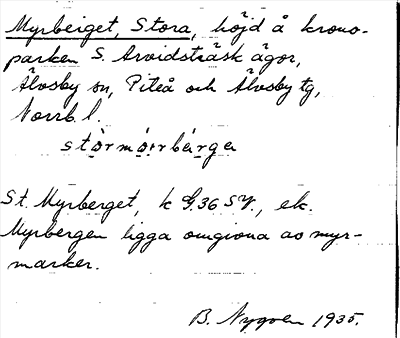 Myrberget, Stora, höjd å krono-
parken S. Arvidsträsk ägor,
Älvsby sn, Piteå och Älvsby tg,
Norrb. l.
stòrmỏrrbárga
St. Myrberget, k G.36 SV., ek.
Myrbergen ligga omgivna av myr-
marker.
B. Nygren 1935.